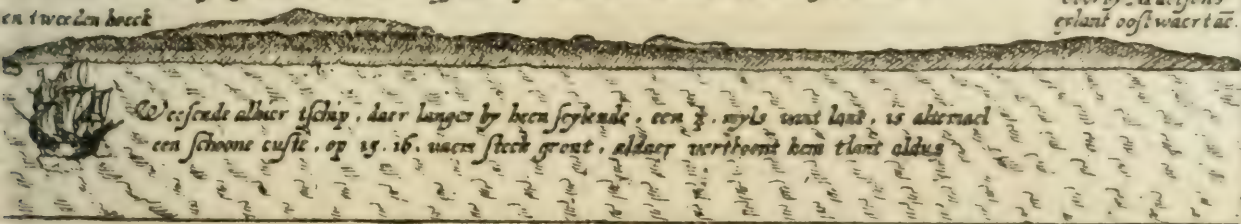 en tweeden hoeck
eylant oostwaert ae.
Weesende alhier tschip, daer langes by heen seylende, een ¾, myls vant lant, is altemael
een schoone custe, op 15. 16. vaem steck gront, aldaer verthoont hem tlant aldus